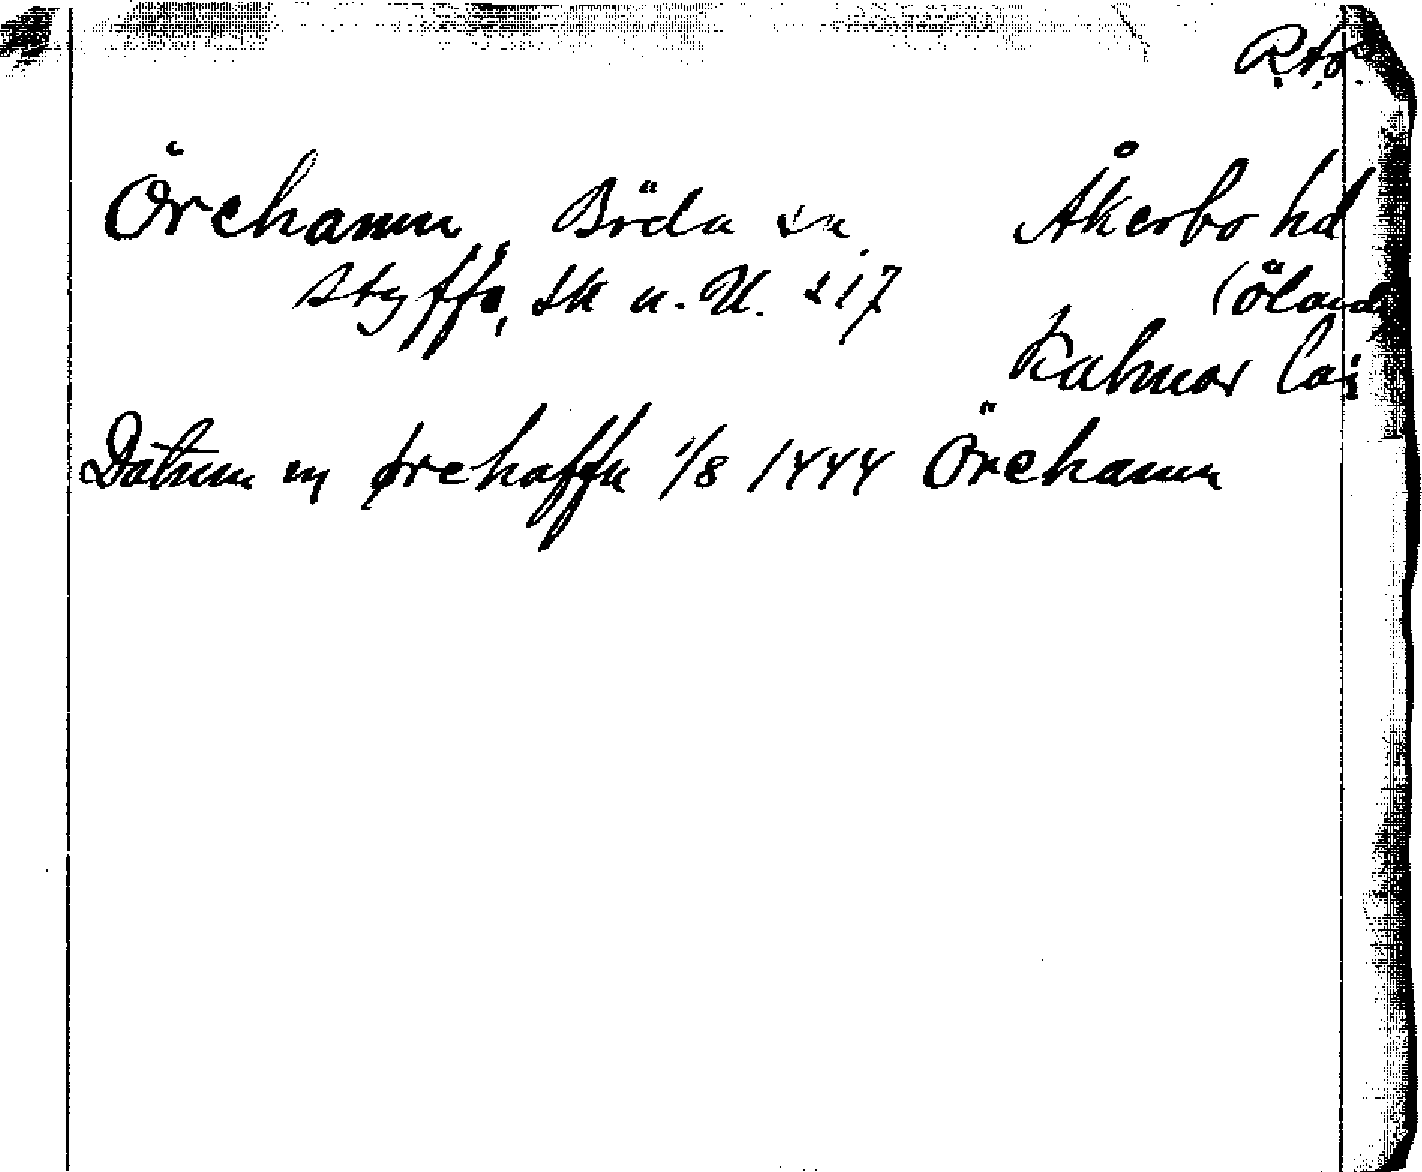 R.t.o.
Örehamn, Böda sn. Åkerbo hd
Styffe, Sk u. U. 217 (Öland)
Kalmar län
Datum in ørehaffn 1/8 1444 Örehamn